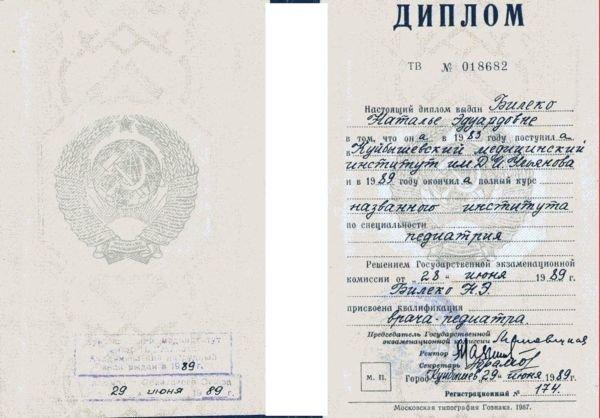 ДИПЛОМ
ТВ № 018682
Настоящий диплом выдан Билеко
Наталье Эдуардовне
в том, что он а в 1983 году поступил а
в Куйбышевский медицинский
институт им. Д. И. Ульянова
и в 1989 году окончил а полный курс
названного института
по специальности
педиатрия
Решением Государственной экзаменационной
комиссии от „28“ июня 1989 г.
Билеко Н.Э.
присвоена квалификация
врача-педиатра
Председатель Государственной
экзаменационной комиссии
Ректор
Секретарь
Город Куйбышев, 29 июня 1989 г.
М. П.
Регистрационный № 174.
Московская типография Гознака. 1987.
выдан в 1989г.
29 июня 1989г.